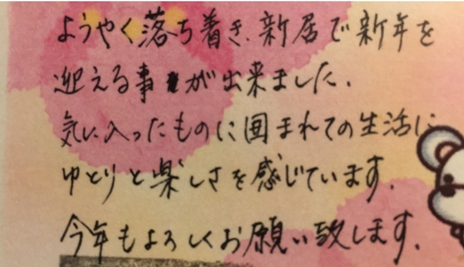 ようやく落ち着き、新居で新年を
迎える事が出来ました。
気に入ったものに囲まれての生活に
ゆとりと楽しさを感じています。
今年もよろしくお願い致します。